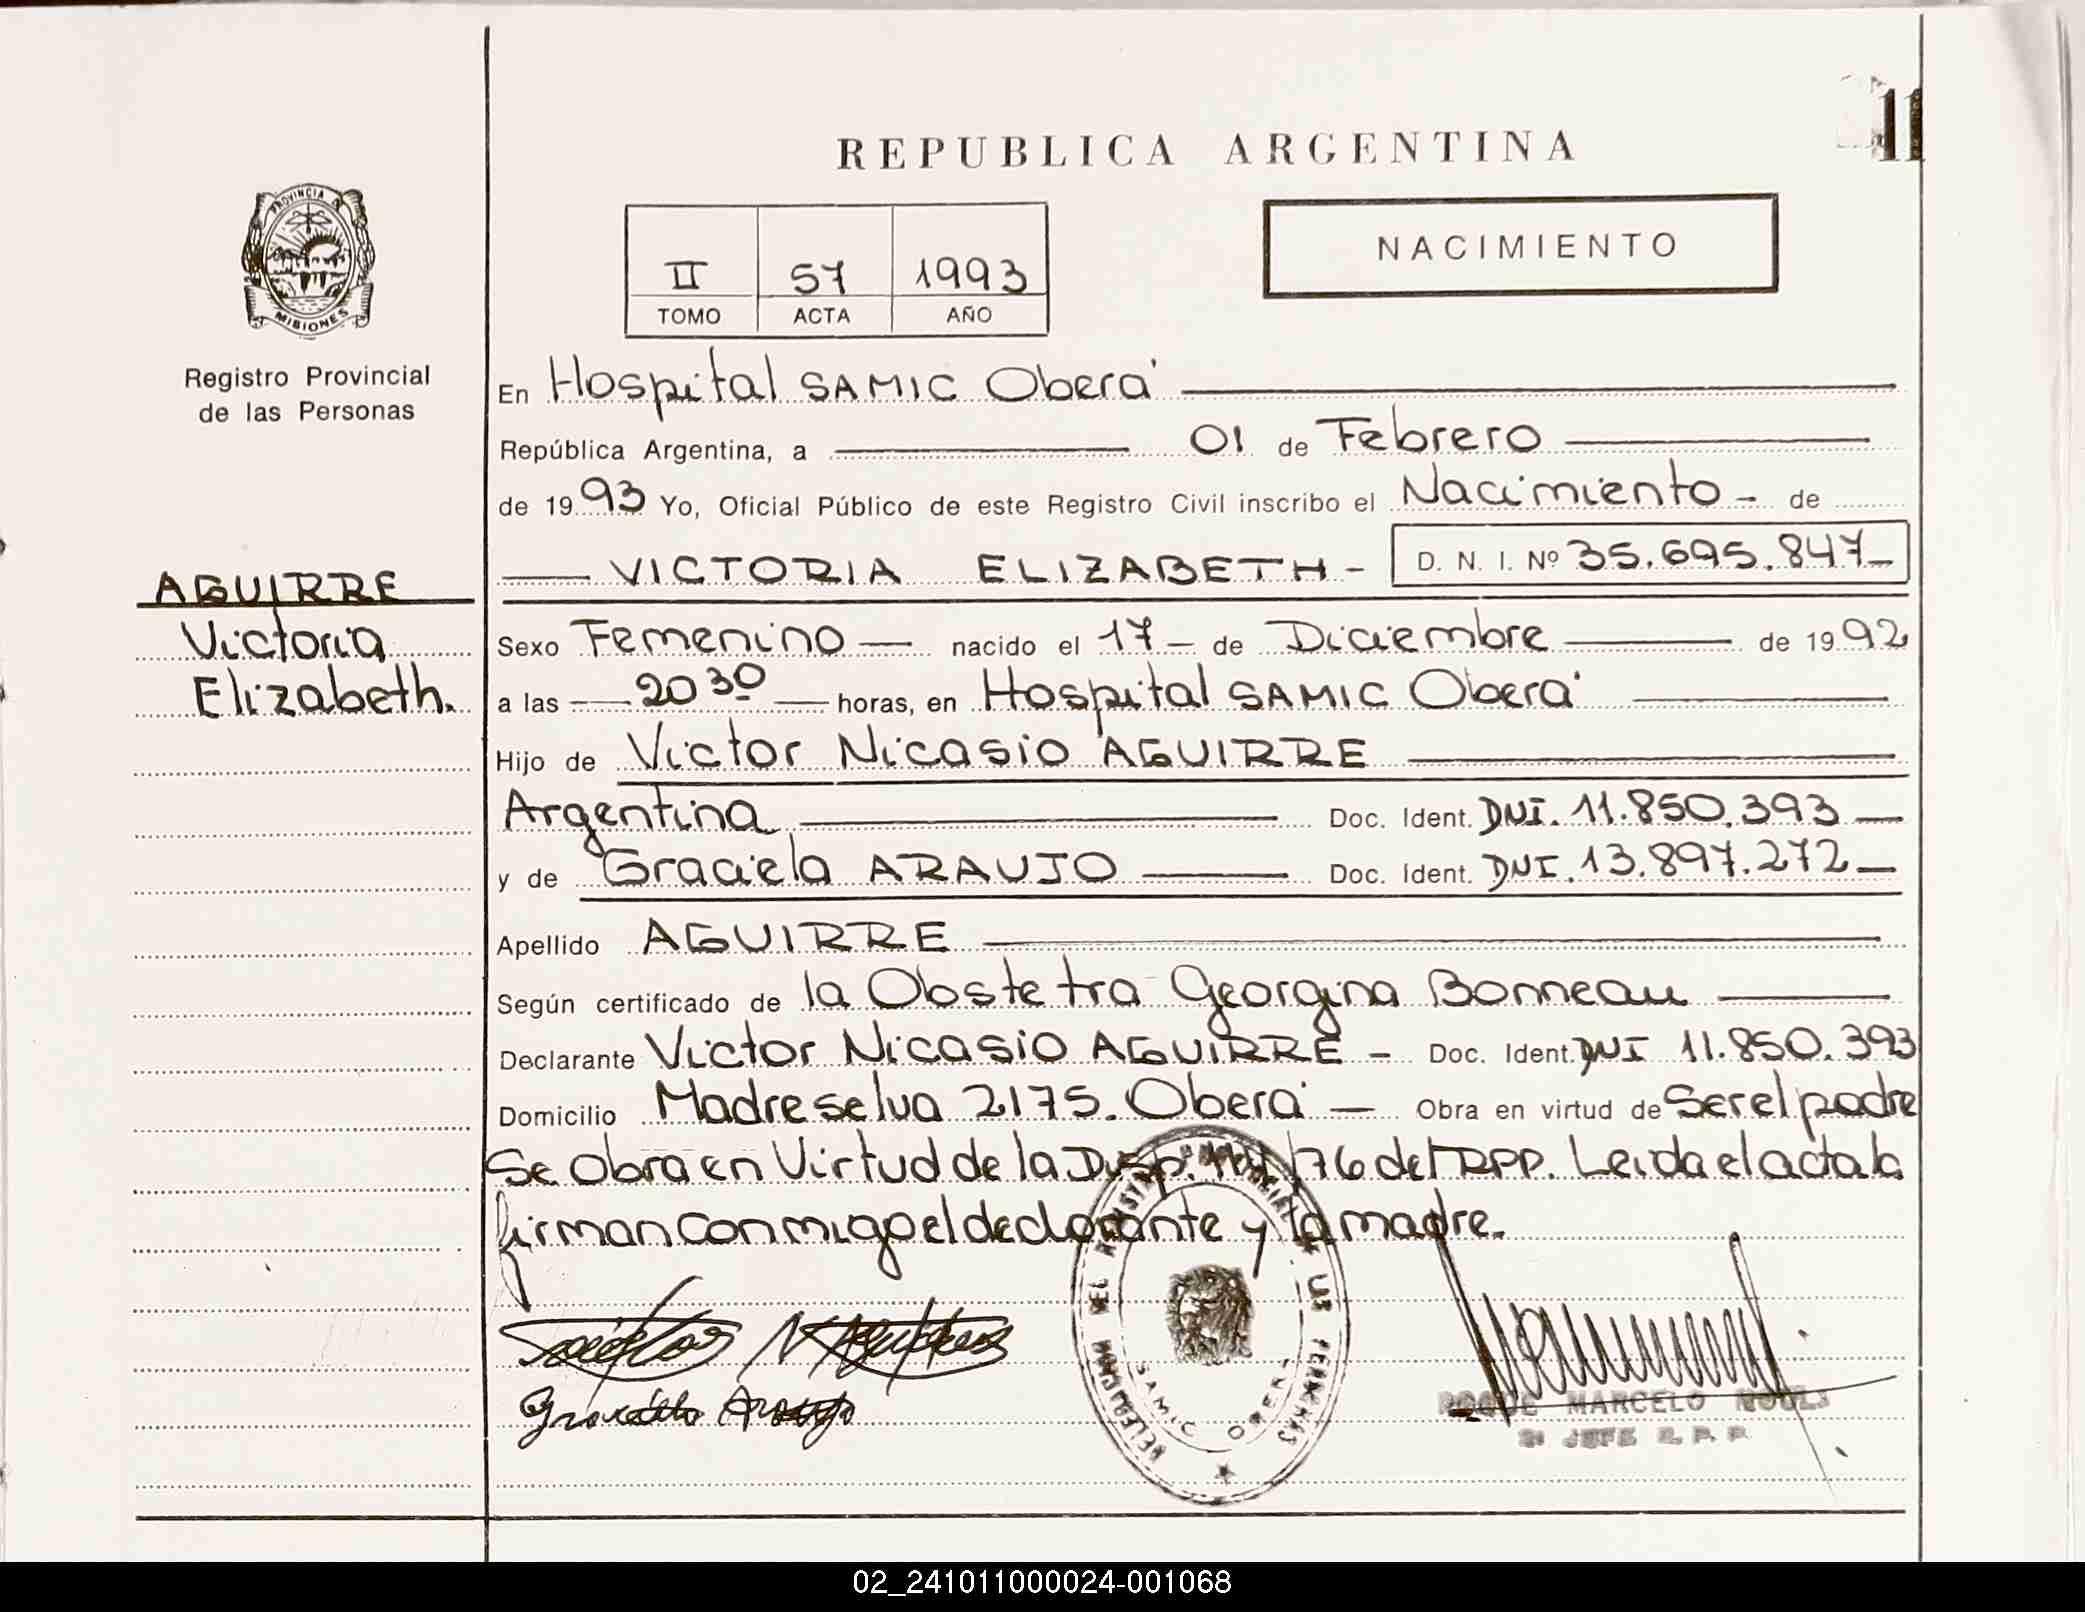 11
REPUBLICA ARGENTINA
PROVINCIA DE
MISIONES
Registro Provincial
de las Personas
NACIMIENTO
II 57 1993
TOMO ACTA AÑO
En Hospital SAMIC Oberá
República Argentina, a 01 de Febrero
de 1993 Yo, Oficial Público de este Registro Civil inscribo el Nacimiento - de
VICTORIA ELIZABETH - D. N. I. Nº 35.695.847
AGUIRRE
Victoria
Elizabeth.
Sexo Femenino nacido el 17 - de Diciembre de 1992
a las 20 30 horas, en Hospital SAMIC Oberá
Hijo de Victor Nicasio AGUIRRE
Argentina Doc. Ident. DNI. 11.850.393
y de Graciela ARAUJO Doc. Ident. DNI. 13.897.272
Apellido AGUIRRE
Según certificado de la Obstetra Georgina Bonneau
Declarante Victor Nicasio AGUIRRE - Doc. Ident. DNI 11.850.393
Domicilio Madreselva 2175. Oberá - Obra en virtud de Ser el padre
Se Obra en Virtud de la Disp. /76 del RPP. Leida el acta la
firman conmigo el declarante y la madre.
SAMIC OBERA
Araujo
ROQUE MARCELO
JEFE R. P. P.
02_241011000024-001068